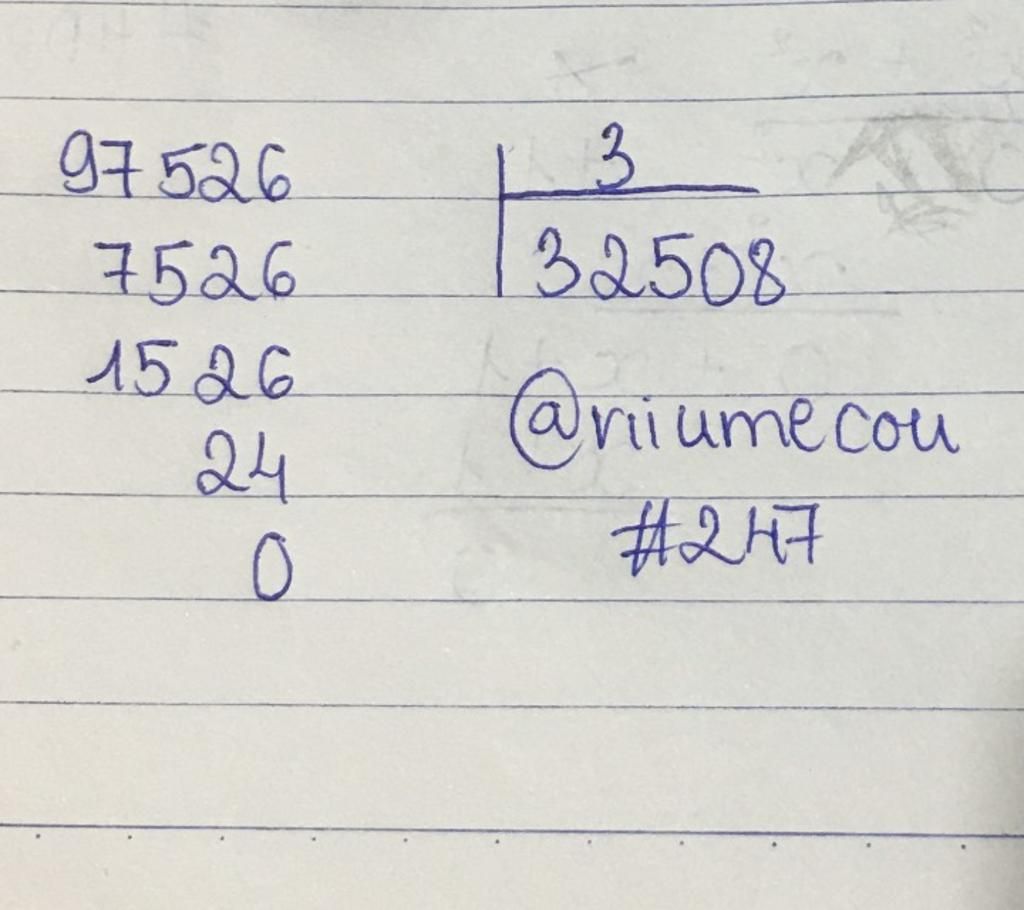 97526 3
7526 32508
1526
24
0
@riiumecou
#247